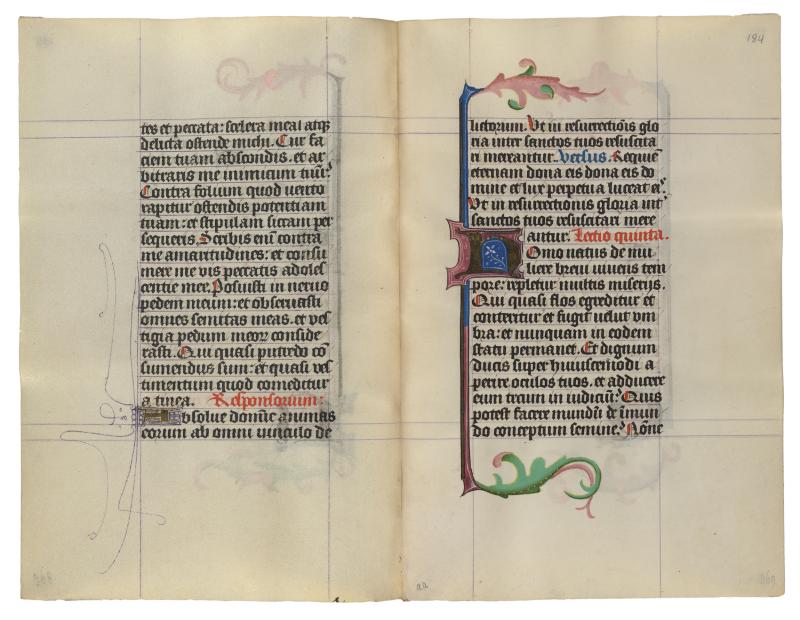 tes et peccata: scelera mea atq̃
delicta ostende michi. Cur fa
ciem tuam abscondis. et ar
bitraris me inimicum tuũ?
Contra folium quod uento
rapitur ostendis potentiam
tuam: et stipulam siccam per
sequeris. Scribis eni͂ contra
me amaritudines: et consu
mere me vis peccatis adoles
centie mee. Posuisti in neruo
pedem meum: et obseruasti
omnes semitas meas. et ves
tigia pedum meoꝝ conside
rasti. Qui quasi putredo cõ
sumendus sum: et quasi ves
timentum quod comeditur
a tinea. Responsorium:
Absolue domĩe animas
eorum ab omni uinculo de
184
lictorum. Ut in resurrectiõis glo
ria inter sanctos tuos resuscita
ri mereantur. Versus. Requiẽ
eternam dona eis dona eis do
mine et lux perpetua luceat eis.
Ut in resurrectionis gloria int̾
sanctos tuos resuscitari mere
antur. Lectio quinta.
Homo natus de mu
liere breui uiuens tem
pore: repletur multis miserijs.
Qui quasi flos egreditur et
conteritur et fugit uelut vm
bra: et nunquam in eodem
statu permanet. Et dignum
ducis super huiuscemodi a
perire oculos tuos. et adducere
eum tecum in iudiciũ? Quis
potest facere mundũ de ĩmun
do conceptum semine? Nõne
268
aa
269